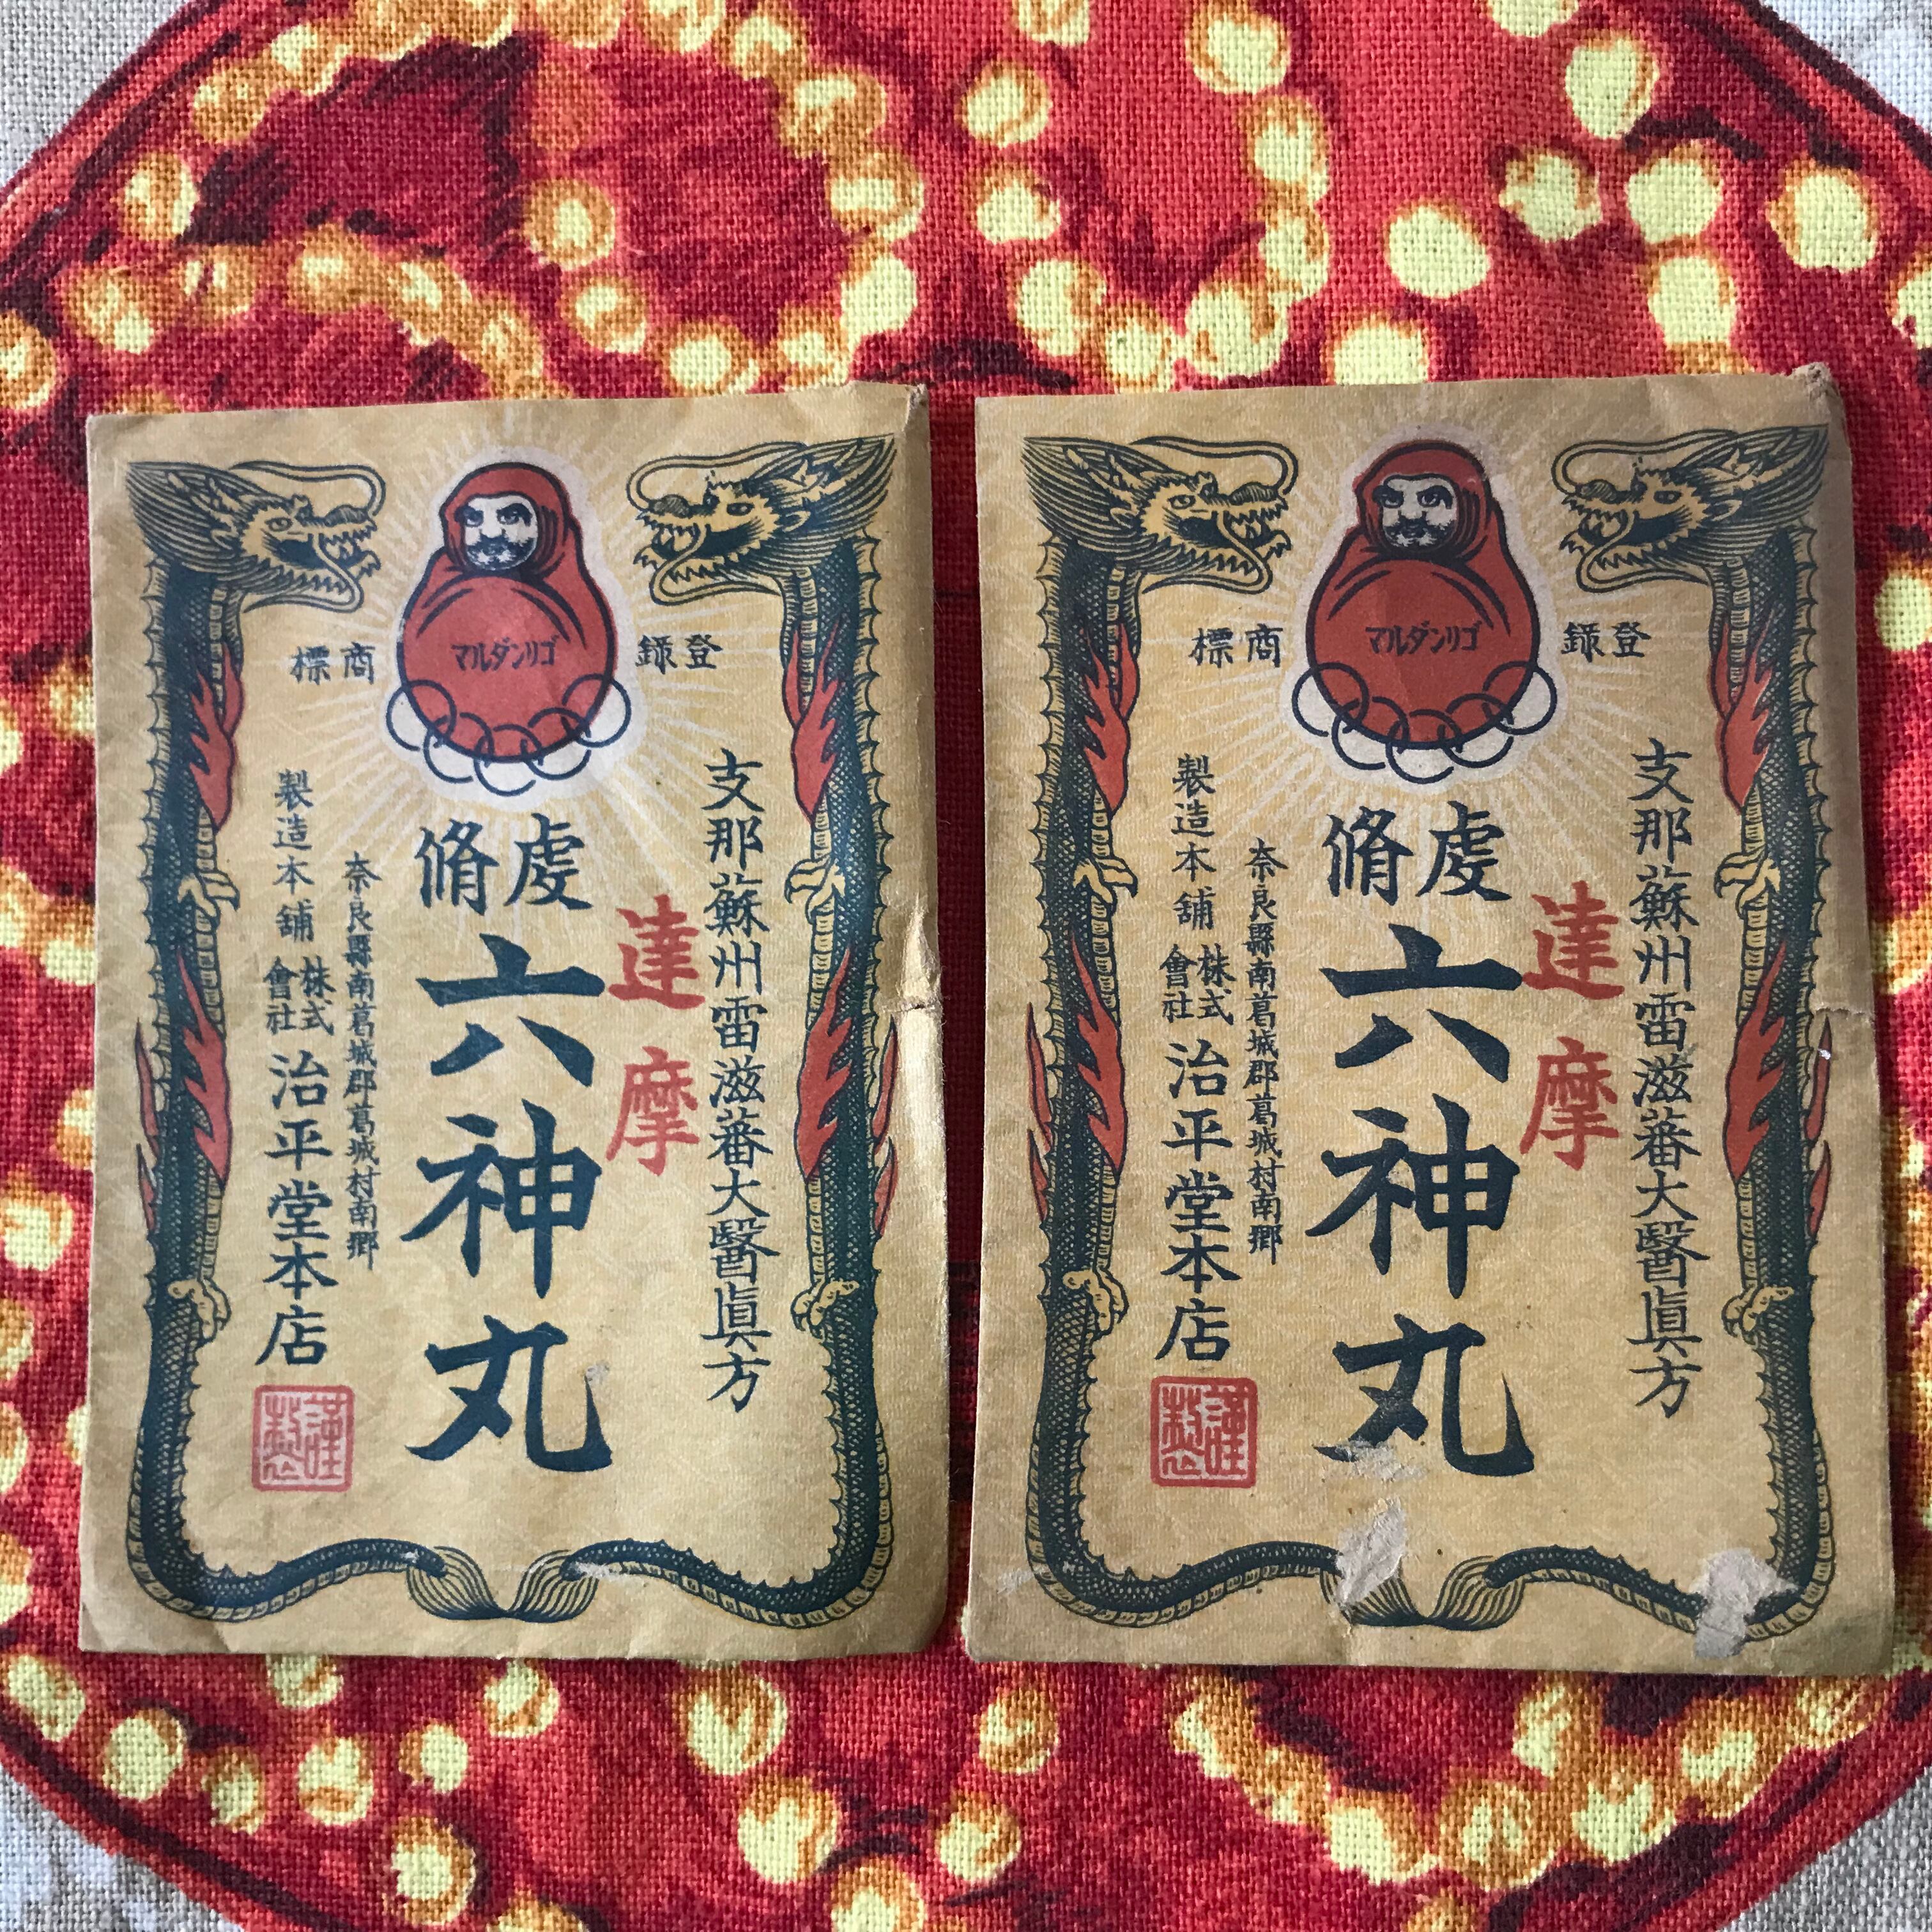 登錄
ゴリンダルマ
商標
支那蘇州雷滋蕃大醫眞方
達摩
虔脩
六神丸
奈良縣南葛城郡葛城村南鄕
製造本舖 株式會社 治平堂本店
謹製
登錄
ゴリンダルマ
商標
支那蘇州雷滋蕃大醫眞方
達摩
虔脩
六神丸
奈良縣南葛城郡葛城村南鄕
製造本舖 株式會社 治平堂本店
謹製